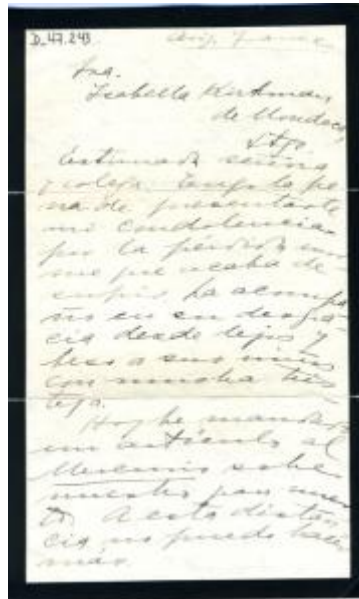 D.47.243
Sra.
Isabella Kerkman
de Mondaca
Stgo.
Estimada señora
y colega: Tengo la pe
na de presentarle
mi condolencia
por la pérdida enor
me que acaba de
sufrir. La acompa
ño en su desgra
cia desde lejos y
beso a sus niños
con mucha tris
teza.
Hoy he mandado
un artículo al
Mercurio sobre
nuestro pan muer
to. A esta distan
cia no puedo hacer
más.